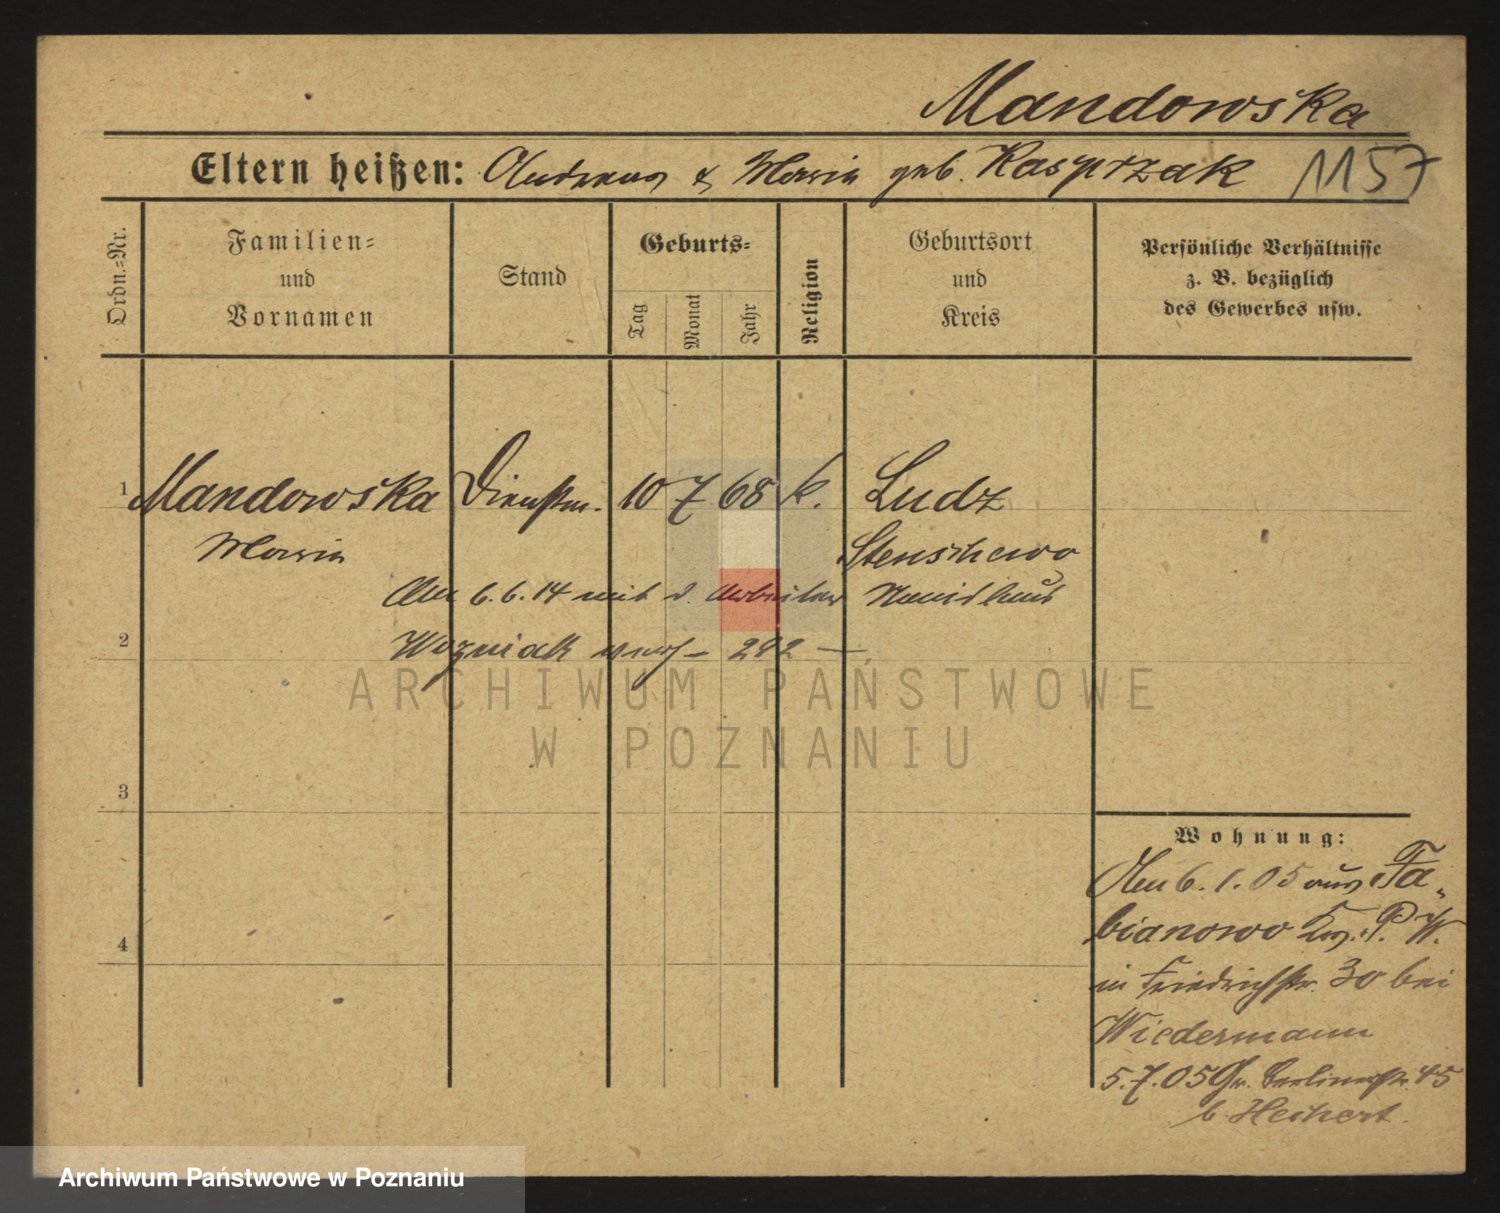 Mandowska
Eltern heißen: Andreas & Maria geb. Kasprzak 1157
Ordn.=Nr.
Familien=
und
Vornamen
Stand
Geburts=
Tag
Monat
Jahr
Religion
Geburtsort
und
Kreis
Persönliche Verhältnisse
z. B. bezüglich
des Gewerbes usw.
1 Mandowska Dienstm. 10 7 68 k. Ludz
Maria Stenschewo
Am 6.6.14 mit d. Arbeiter
2 Wozniak verh – 292 –
ARCHIWUM PAŃSTWOWE
W POZNANIU
3
Wohnung:
Am 6.1.05 aus Fa-
bianowo Krs. P. W.
4
in Friedrichstr. 30 bei
Wiedermann
5.7.05 Gr. Berlinerstr. 45
b Heinert.
Archiwum Państwowe w Poznaniu